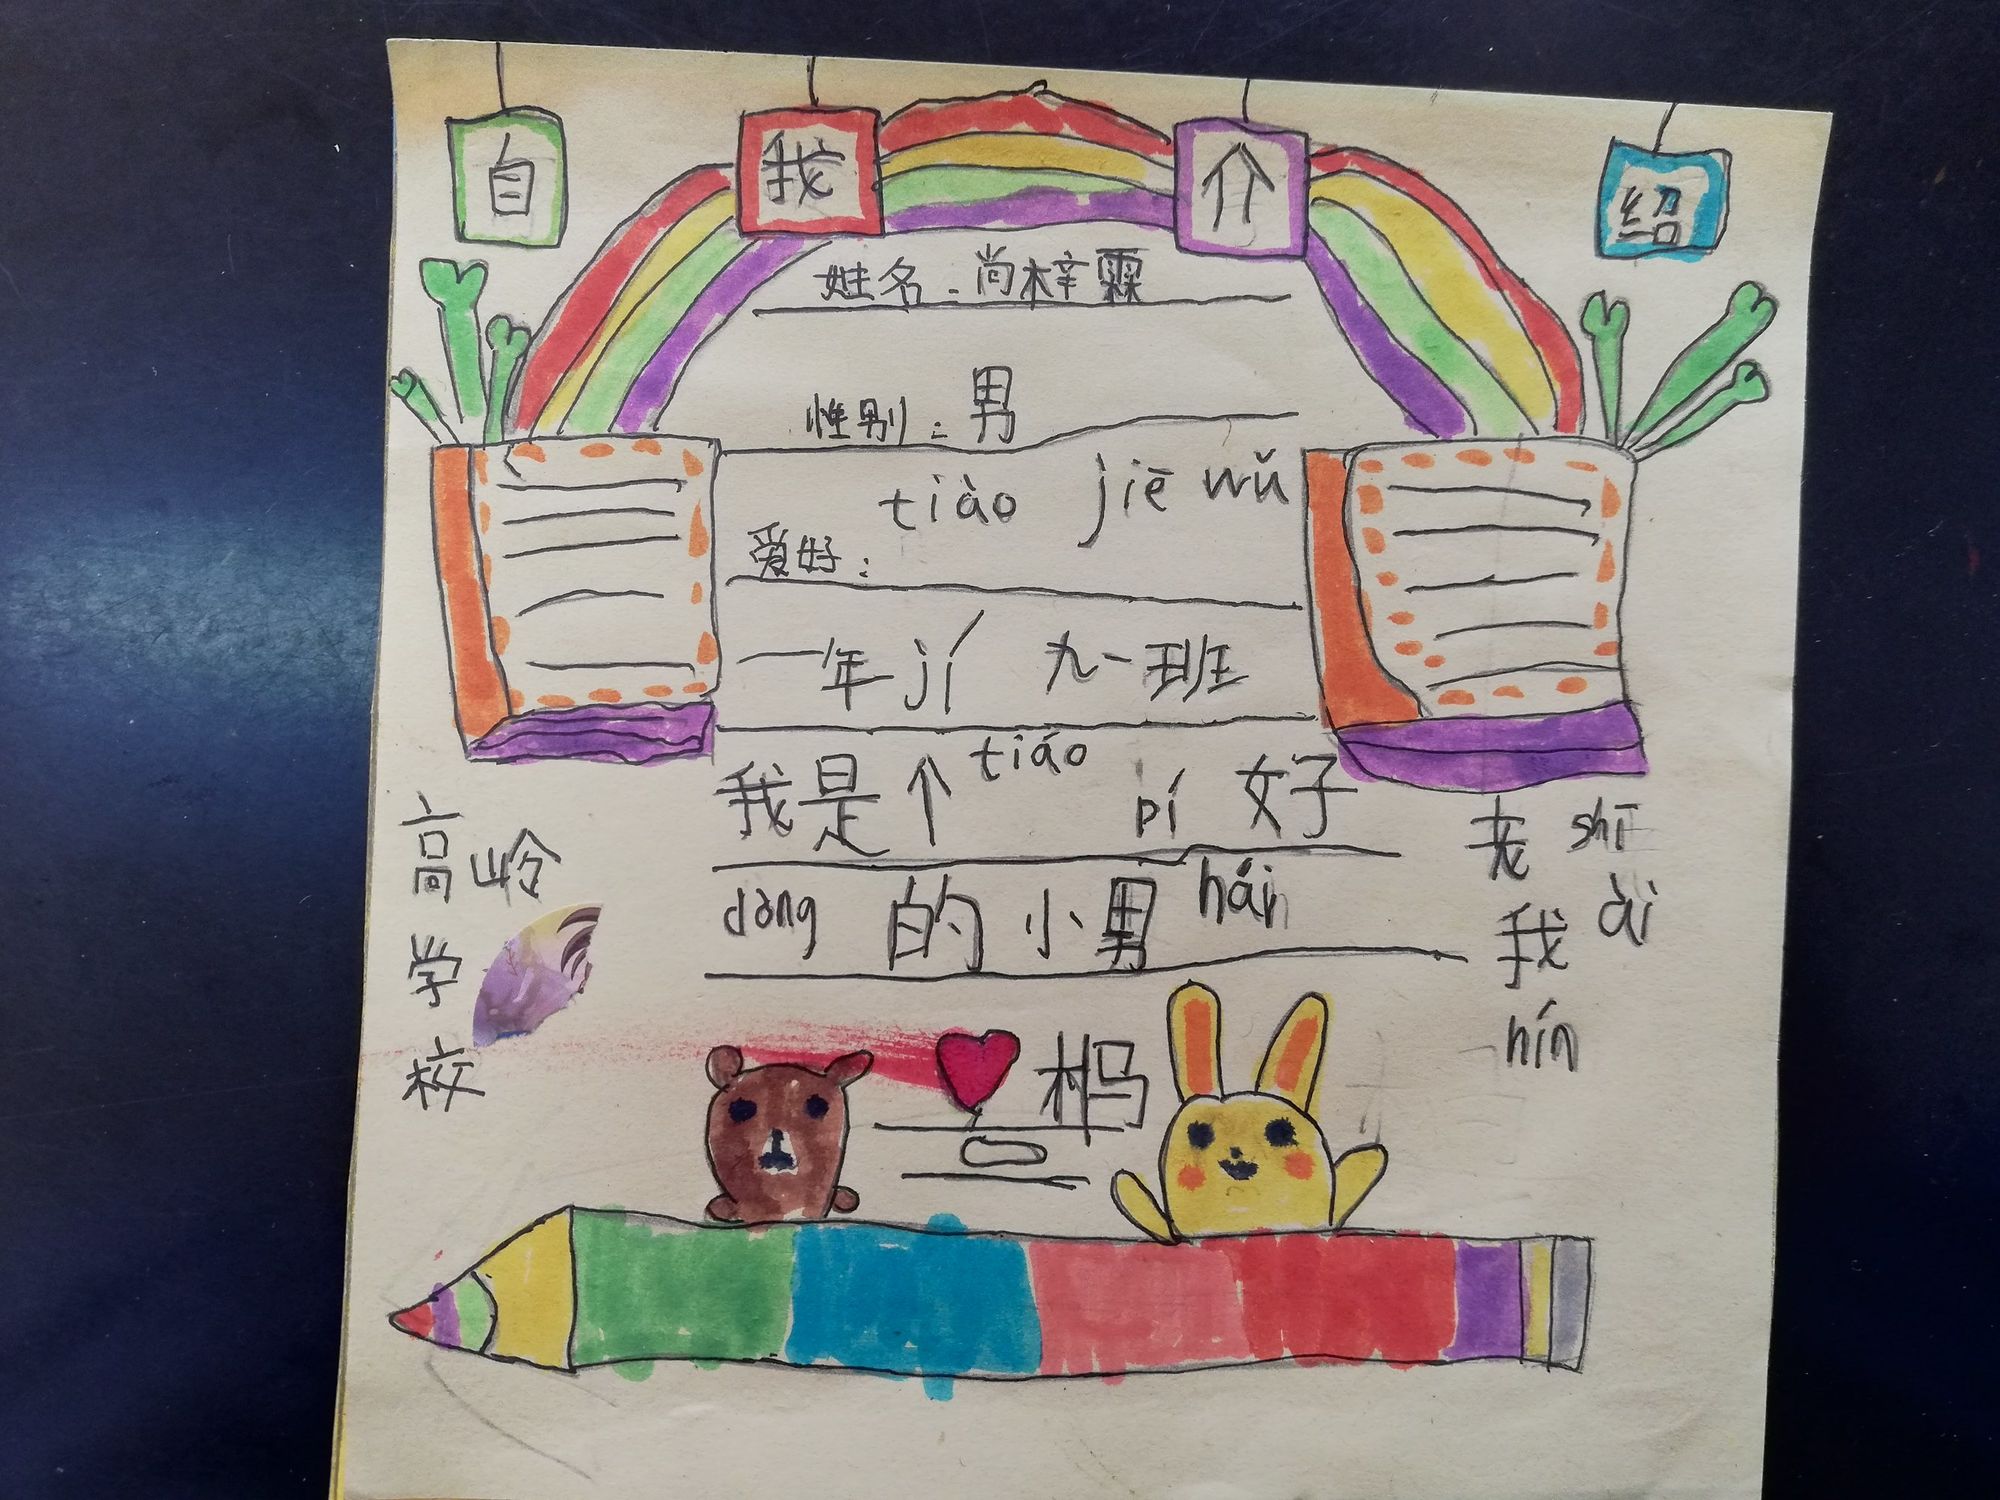 自我介绍
姓名：尚梓霖
性别：男
tiào jiē wǔ
爱好：
一年jí 九一班
我是个tiáo pí 好
dòng 的小男hái
高岭
学
校
老shī
ài
我
nín